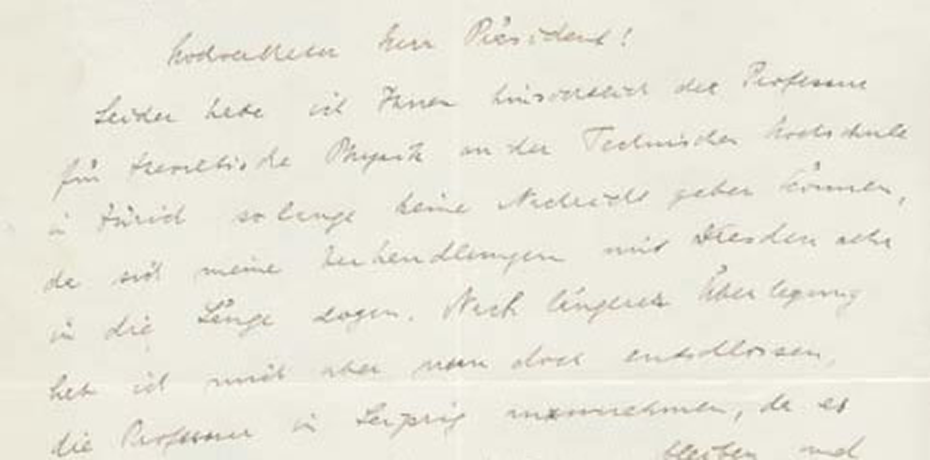 Hochverehrter Herr Präsident!
Leider habe ich Ihnen hinsichtlich der Professur
für theoretische Physik an der Technischen Hochschule
in Zürich so lange keine Nachricht geben können,
da sich meine Verhandlungen mit Dresden sehr
in die Länge zogen. Nach längerer Überlegung
hab ich mich aber nun doch entschlossen,
die Professur in Leipzig anzunehmen, da es
bleiben und